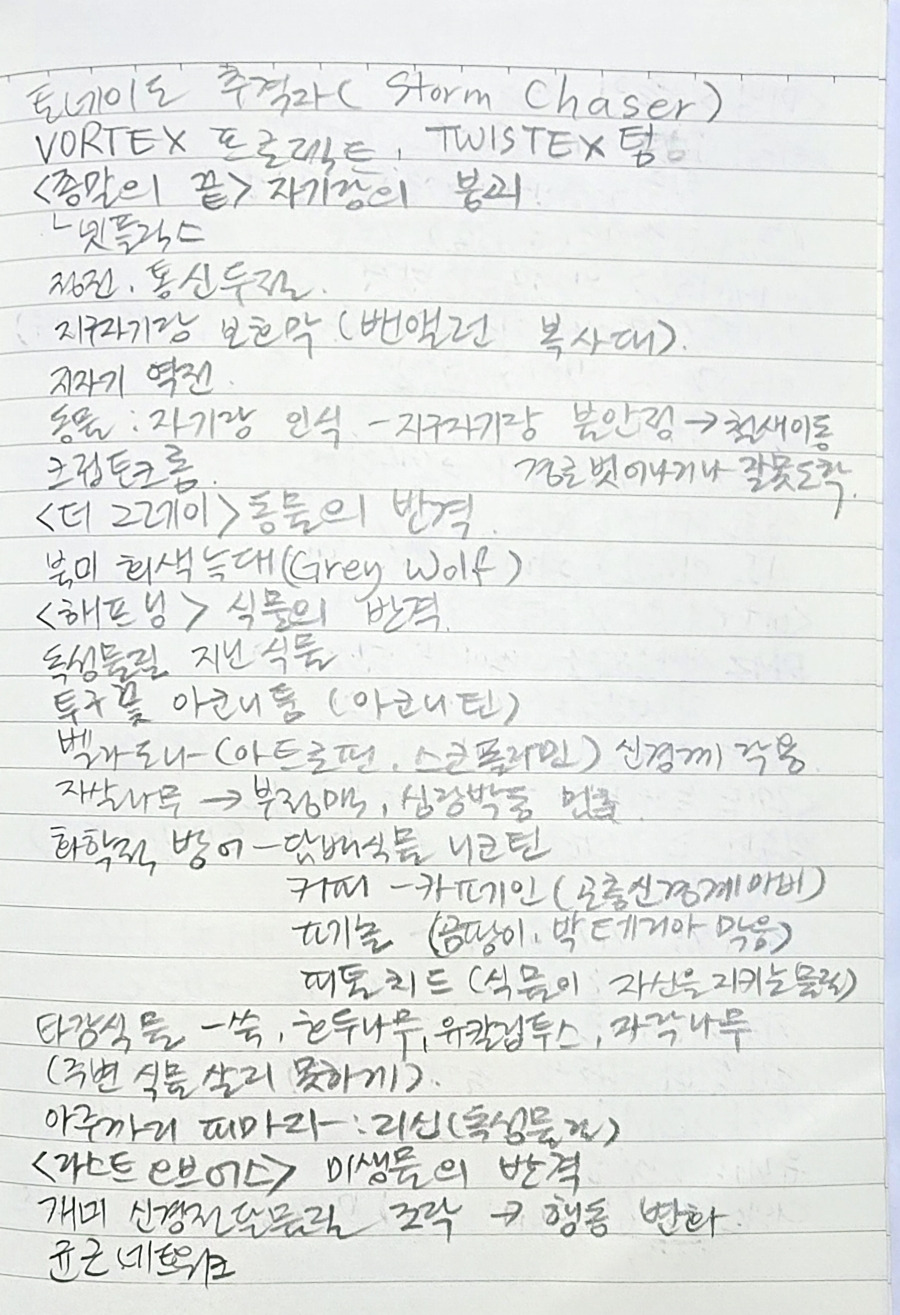 토네이도 추격자( Storm Chaser)
VORTEX 프로젝트, TWISTEX 팀
<종말의 끝> 자기장의 붕괴
ㄴ넷플릭스
정전, 통신두절.
지구자기장 보호막 (밴앨런 복사대).
지자기 역전.
동물 : 자기장 인식 - 지구자기장 불안정 → 철새이동
크립토크롬. 경로벗어나거나 잘못도착.
<더 그레이> 동물의 반격.
북미 회색늑대(Grey Wolf)
<해프닝> 식물의 반격.
독성물질 지닌 식물
투구꽃 아코니툼 (아코니틴)
벨라도나 - (아트로핀, 스코폴라민) 신경계 작용
자살나무 → 부정맥, 심장박동 멈춤
화학적 방어 - 담배식물 니코틴
커피 - 카페인 (곤충신경계마비)
페놀 (곰팡이, 박테리아 막음)
(식물이 자신을지키는물질)
타감식물 - 쑥, 호두나무, 유칼립투스,
(주변 식물 살리 못하게).
아주까리 피마자 : 리신(독성물질)
<라스트 오브 어스> 미생물의 반격
개미 신경전달물질 조작 → 행동 변화.
균근 네트워크